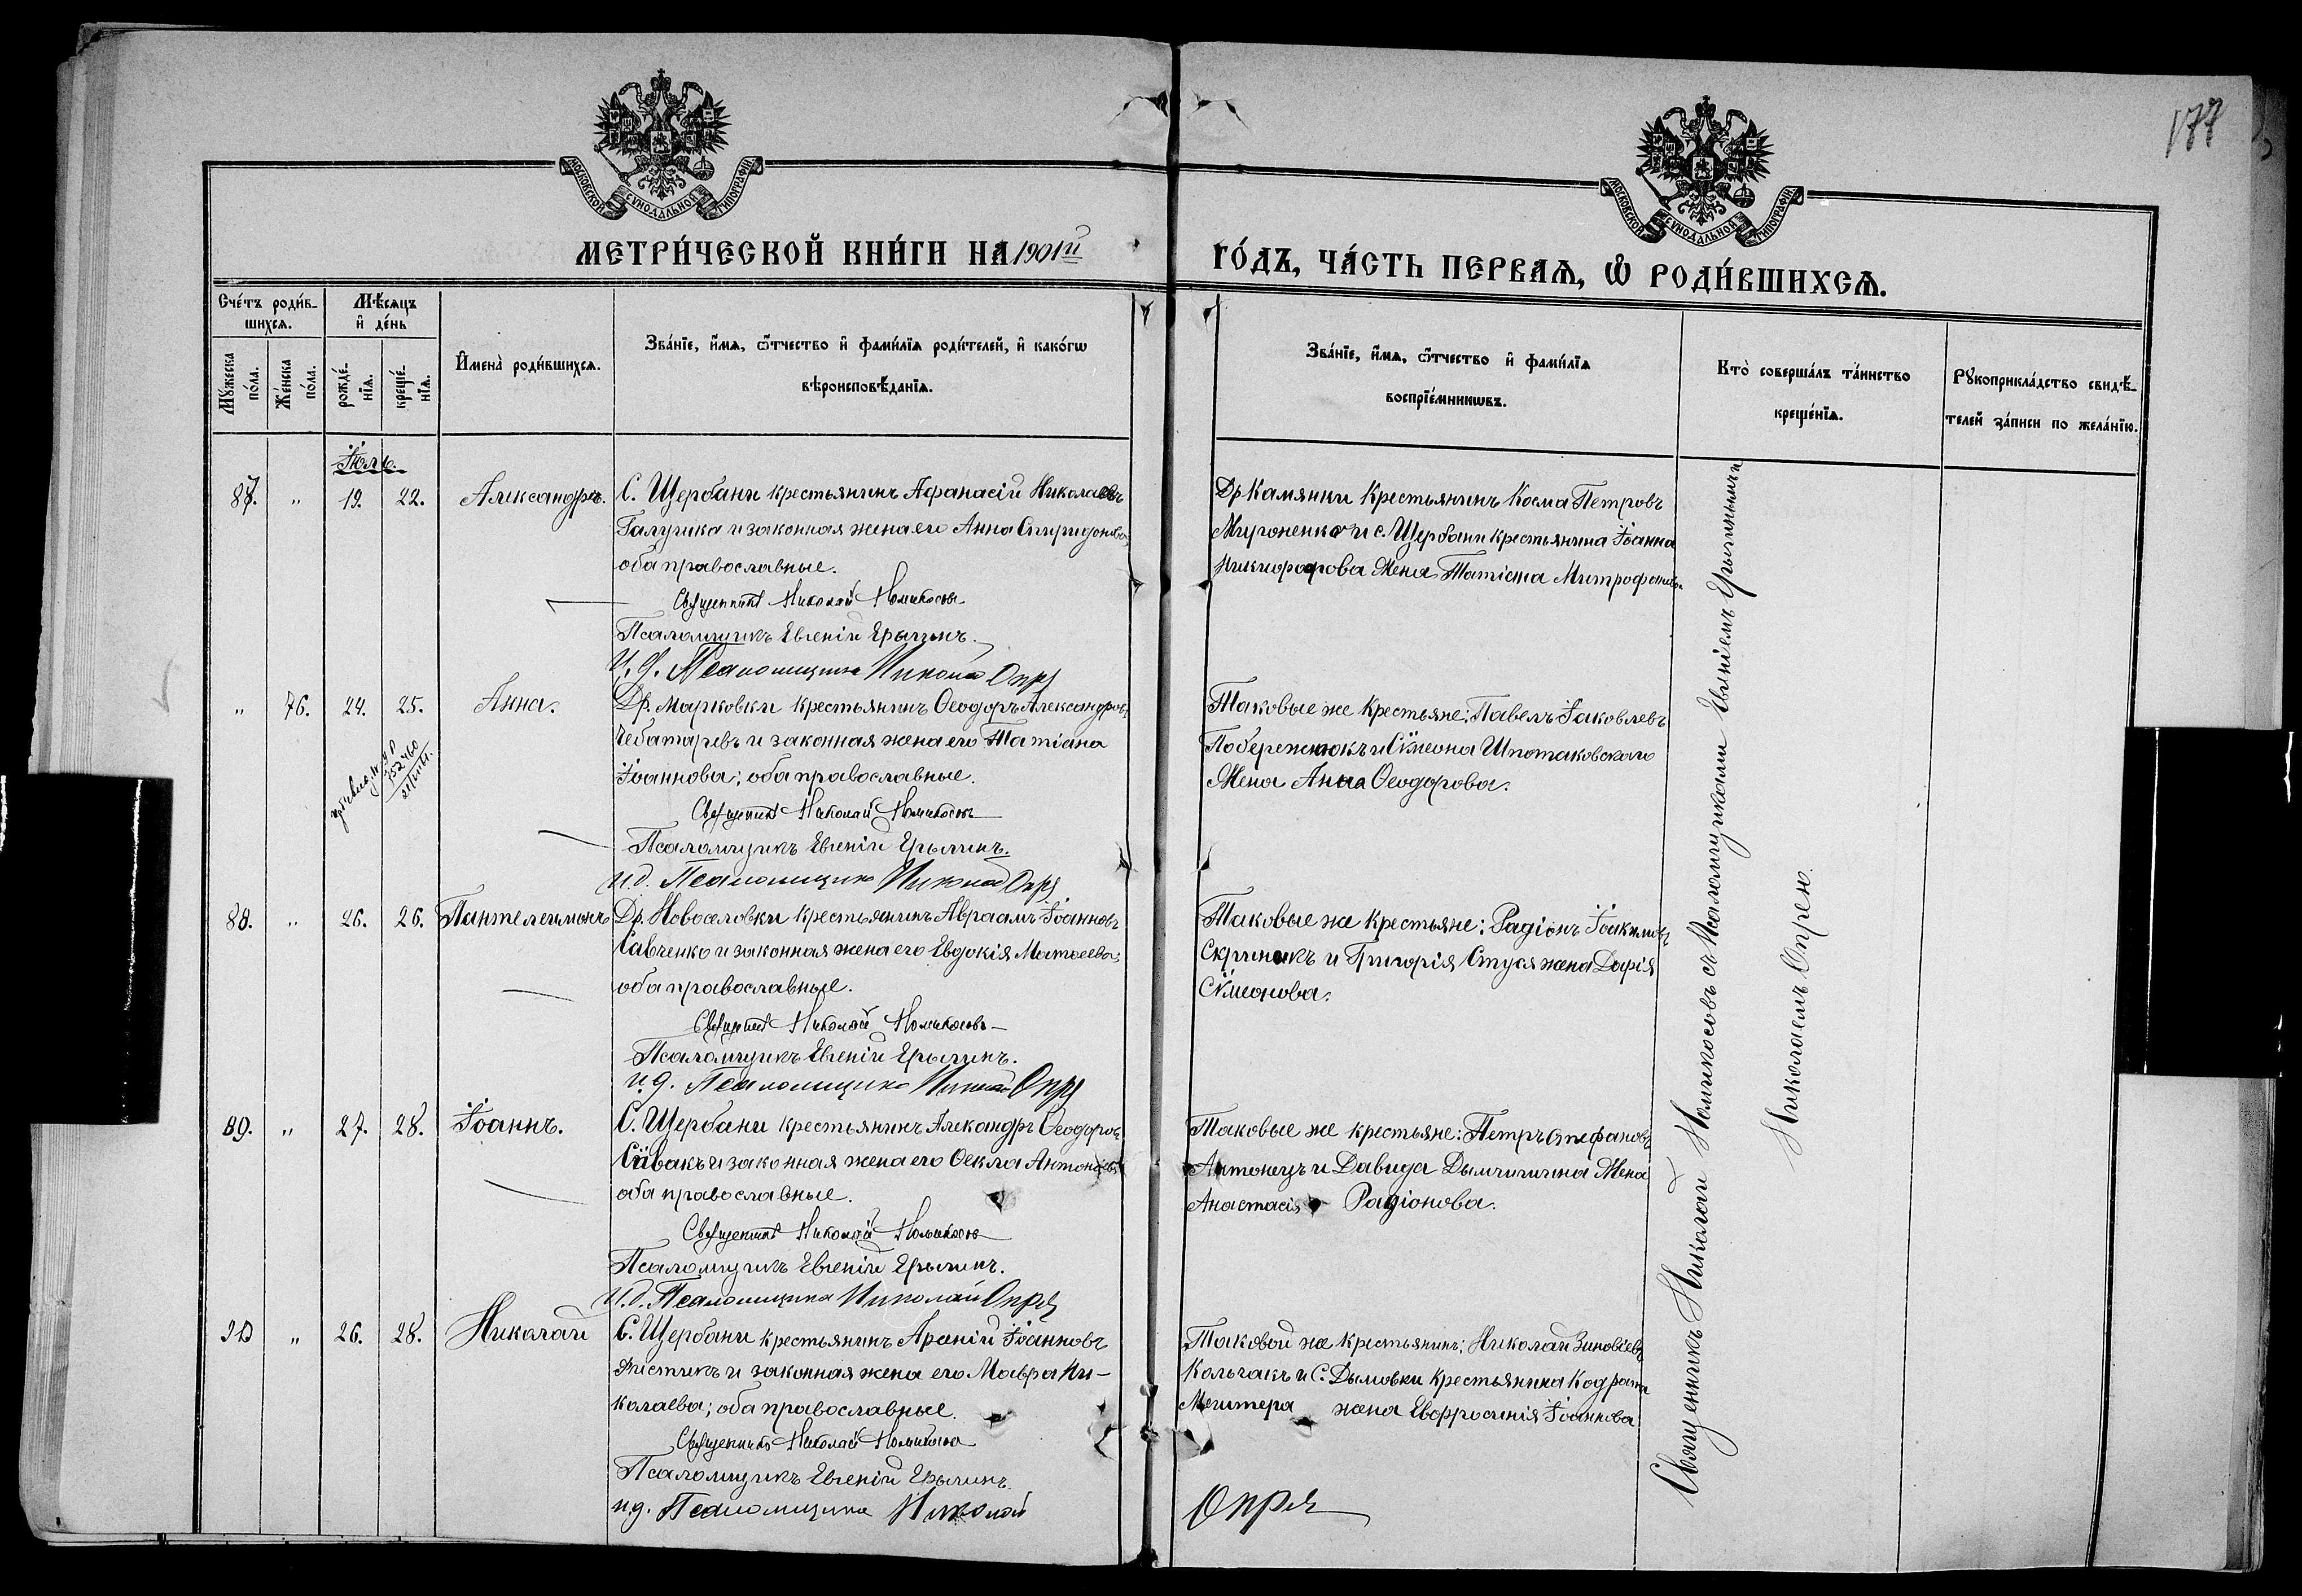 177
МОСКОВСКОЙ СѴНОДАЛЬНОЙ ТИПОГРАФІИ
МОСКОВСКОЙ СѴНОДАЛЬНОЙ ТИПОГРАФІИ
МЕТРИ́ЧЕСКОЙ КНИ́ГИ НА 1901й
ГО́ДЪ, ЧА́СТЬ ПЕРВАѦ, Ѡ҆ РОДИ́ВШИХСѦ.
Счéтъ роди́в-
шихсѧ.
Мѣ́сѧцъ
и҆ дéнь
Мꙋ́жеска
по́ла.
Жéнска
по́ла.
рождé-
нїѧ.
крещé-
нїѧ.
И҆мена̀ роди́вшихсѧ.
Звáнїе, и҆́мѧ, ѻ҆́тчество и҆ фами́лїѧ роди́телей, и҆ какóгѡ
вѣроисповѣ́данїѧ.
Звáнїе, и҆́мѧ, ѻ҆́тчество и҆ фами́лїѧ
воспрїéмникѡвъ.
Ктò совершáлъ тáинство
крещéнїѧ.
Рꙋкоприклáдство свидѣ́-
телей зáписи по желáнїю.
Іюль.
87. " 19. 22. Александръ.
С. Щербани крестьянинъ Аѳанасій Николаевъ
Галушка и законная жена его Анна Спиридонова,
оба православные.
Священникъ Николай Номикосовъ
Псаломщикъ Евгеній Ерыгинъ.
И. д. Псаломщика Николай Опря
Др. Камянки крестьянинъ Косма Петровъ
Мироненко и с. Щербани крестьянина Іоанна
Никифорова жена Татіана Митрофанова.
" 76. 24. 25. Анна.
Др. Марковки крестьянинъ Ѳеодоръ Александровъ
Чеботаревъ и законная жена его Татіана
Іоаннова; оба православные.
Священникъ Николай Номикосовъ
Псаломщикъ Евгеній Ерыгинъ.
и.д. Псаломщика Николай Опря
Таковые же крестьяне: Павелъ Іаковлевъ
Побережнюкъ и Сѵмеона Шпотаковскаго
жена Анна Ѳеодорова.
88. " 26. 26. Пантелеимонъ
Др. Новоселовки крестьянинъ Авраамъ Іоанновъ
Савченко и законная жена его Евдокія Матѳеева;
оба православные.
Священникъ Николай Номикосовъ
Псаломщикъ Евгеній Ерыгинъ.
и.д. Псаломщика Николай Опря
Таковые же крестьяне: Радіонъ Іоакимовъ
Скрипникъ и Григорія Стуся жена Дарія
Сѵмеонова.
89. " 27. 28. Іоаннъ.
С. Щербани крестьянинъ Александръ Ѳеодоровъ
Сивакъ и законная жена его Ѳекла Антоніева;
оба православные.
Священникъ Николай Номикосовъ
Псаломщикъ Евгеній Ерыгинъ.
И.д. Псаломщика Николай Опря
Таковые же крестьяне: Петръ Стефановъ
Антонецъ и Давида жена
Анастасія Радіонова.
90 " 26. 28. Николай
С. Щербани крестьянинъ Іоанновъ
и законная жена его Мавра Ни-
колаева; оба православные.
Священникъ Николай Номикосовъ
Псаломщикъ Евгеній Ерыгинъ.
и.д. Псаломщика Николай
Опря
Таковой же крестьянинъ: Николай Зиновіевъ
Кольчакъ и С. Дымовки крестьянина Кодрата
жена Евфросинія Іоаннова
Священникъ Николай Номикосовъ съ псаломщиками Евгеніемъ Ерыгинымъ и
Николаемъ Опрею.